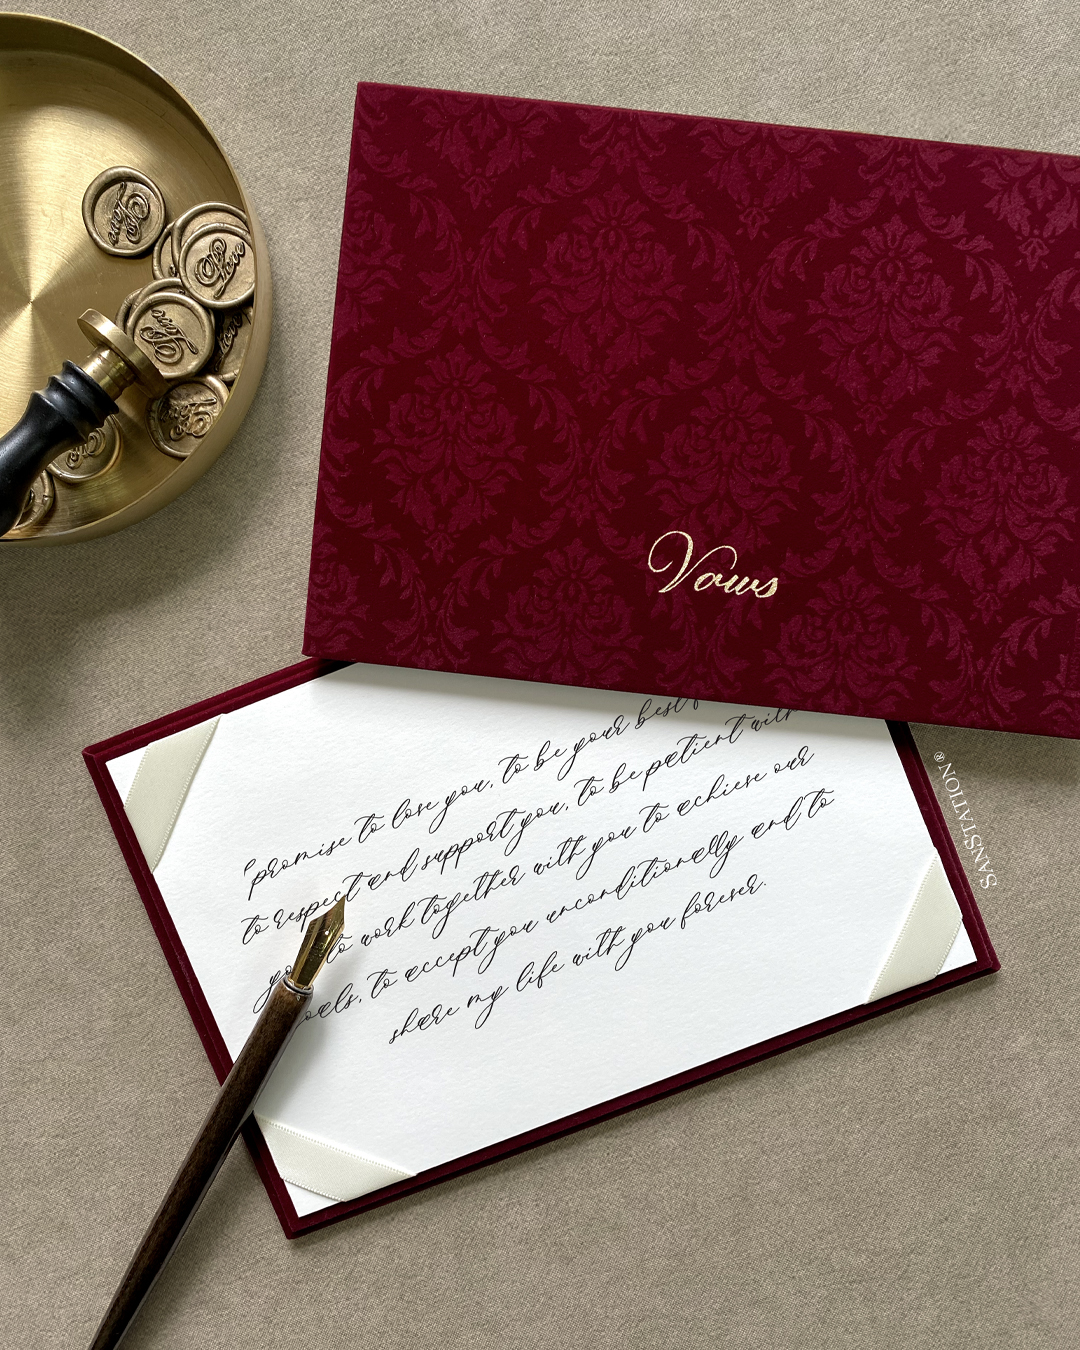 Love
Love
Love
Vows
"promise to love you, to be your best
to respect and support you, to be patient with
to work together with you to achieve our
goals, to accept you unconditionally and to
share my life with you forever.
SANSTATION®